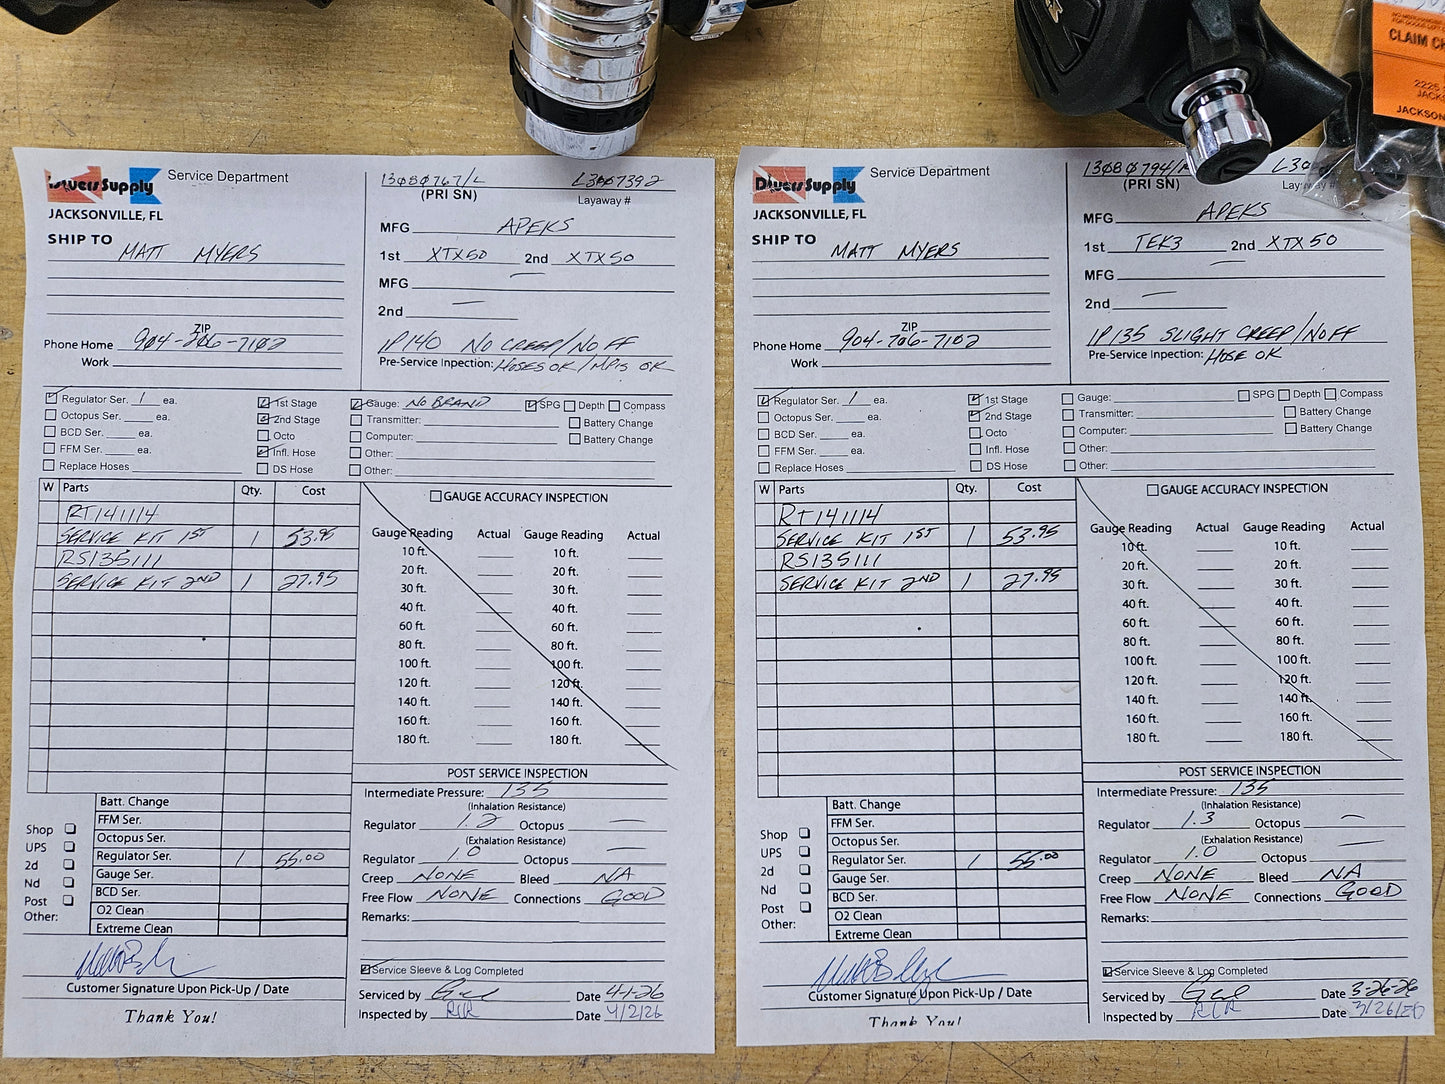 CLAIM CH
2226
JACKS
JACKSON
Divers Supply
Service Department
JACKSONVILLE, FL
SHIP TO
MATT MYERS
ZIP
Phone Home 904-206-7102
Work
13080767/L L3007392
(PRI SN) Layaway #
MFG APEKS
1st XTX50 2nd XTX50
MFG —
2nd —
IP 140 NO CREEP/NO FF
Pre-Service Inpection: HOSES OK/MPIS OK
Regulator Ser. 1 ea.
Octopus Ser. ea.
BCD Ser. ea.
FFM Ser. ea.
Replace Hoses
1st Stage
2nd Stage
Octo
Infl. Hose
DS Hose
Gauge: NO BRAND SPG Depth Compass
Transmitter: Battery Change
Computer: Battery Change
Other:
Other:
W Parts Qty. Cost
RT141114
SERVICE KIT 1ST 1 53.95
RS135111
SERVICE KIT 2ND 1 27.95
GAUGE ACCURACY INSPECTION
Gauge Reading Actual Gauge Reading Actual
10 ft. 10 ft.
20 ft. 20 ft.
30 ft. 30 ft.
40 ft. 40 ft.
60 ft. 60 ft.
80 ft. 80 ft.
100 ft. 100 ft.
120 ft. 120 ft.
140 ft. 140 ft.
160 ft. 160 ft.
180 ft. 180 ft.
Shop
UPS
2d
Nd
Post
Other:
Batt. Change
FFM Ser.
Octopus Ser.
Regulator Ser. 1 55.00
Gauge Ser.
BCD Ser.
O2 Clean
Extreme Clean
Customer Signature Upon Pick-Up / Date
Thank You!
POST SERVICE INSPECTION
Intermediate Pressure: 135
(Inhalation Resistance)
Regulator 1.2 Octopus —
(Exhalation Resistance)
Regulator 1.0 Octopus —
Creep NONE Bleed NA
Free Flow NONE Connections GOOD
Remarks:
Service Sleeve & Log Completed
Serviced by Date 4-1-26
Inspected by RLR Date 4/2/26
Divers Supply
Service Department
JACKSONVILLE, FL
SHIP TO
MATT MYERS
ZIP
Phone Home 904-706-7102
Work
13080794/ L30
(PRI SN) Layaway #
MFG APEKS
1st TEK3 2nd XTX50
MFG —
2nd —
IP 135 SLIGHT CREEP/NO FF
Pre-Service Inpection: HOSE OK
Regulator Ser. 1 ea.
Octopus Ser. ea.
BCD Ser. ea.
FFM Ser. ea.
Replace Hoses
1st Stage
2nd Stage
Octo
Infl. Hose
DS Hose
Gauge: SPG Depth Compass
Transmitter: Battery Change
Computer: Battery Change
Other:
Other:
W Parts Qty. Cost
RT141114
SERVICE KIT 1ST 1 53.95
RS135111
SERVICE KIT 2ND 1 27.95
GAUGE ACCURACY INSPECTION
Gauge Reading Actual Gauge Reading Actual
10 ft. 10 ft.
20 ft. 20 ft.
30 ft. 30 ft.
40 ft. 40 ft.
60 ft. 60 ft.
80 ft. 80 ft.
100 ft. 100 ft.
120 ft. 120 ft.
140 ft. 140 ft.
160 ft. 160 ft.
180 ft. 180 ft.
Shop
UPS
2d
Nd
Post
Other:
Batt. Change
FFM Ser.
Octopus Ser.
Regulator Ser. 1 55.00
Gauge Ser.
BCD Ser.
O2 Clean
Extreme Clean
Customer Signature Upon Pick-Up / Date
Thank You!
POST SERVICE INSPECTION
Intermediate Pressure: 135
(Inhalation Resistance)
Regulator 1.3 Octopus —
(Exhalation Resistance)
Regulator 1.0 Octopus —
Creep NONE Bleed NA
Free Flow NONE Connections GOOD
Remarks:
Service Sleeve & Log Completed
Serviced by Date 3-26-26
Inspected by RLR Date 3/26/26